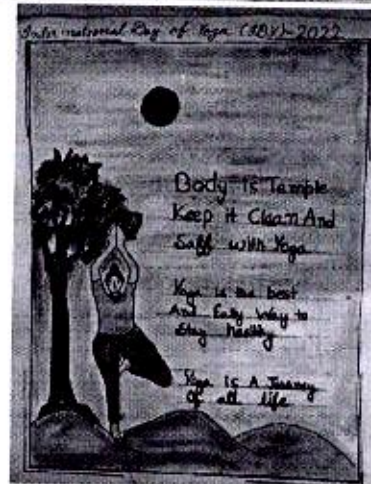 International Day of Yoga (IDY)-2022
Body is Temple
Keep it Clean And
Saff with Yoga
Yoga is the best
And Easy Way to
Stay healthy
Yoga is A Journey
Of all life